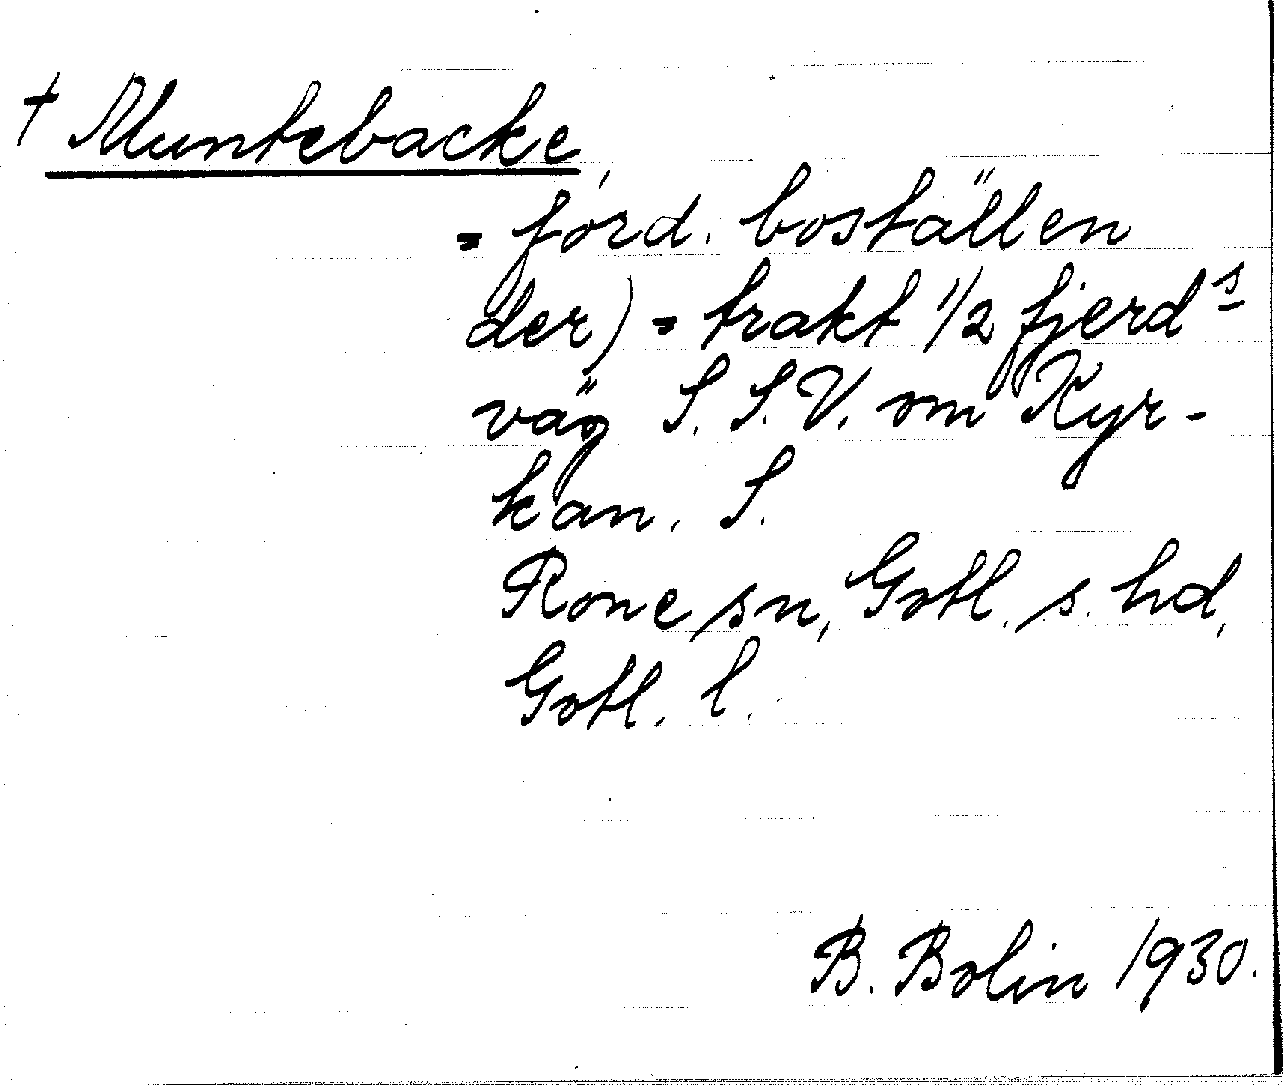 † Muntebacke,
= förd. boställen
der) = trakt 1/2 fjerds
väg S. S. V. om Kyr-
kan. S.
Rone sn, Gotl. s. hd,
Gotl. l.
B. Bolin 1930.